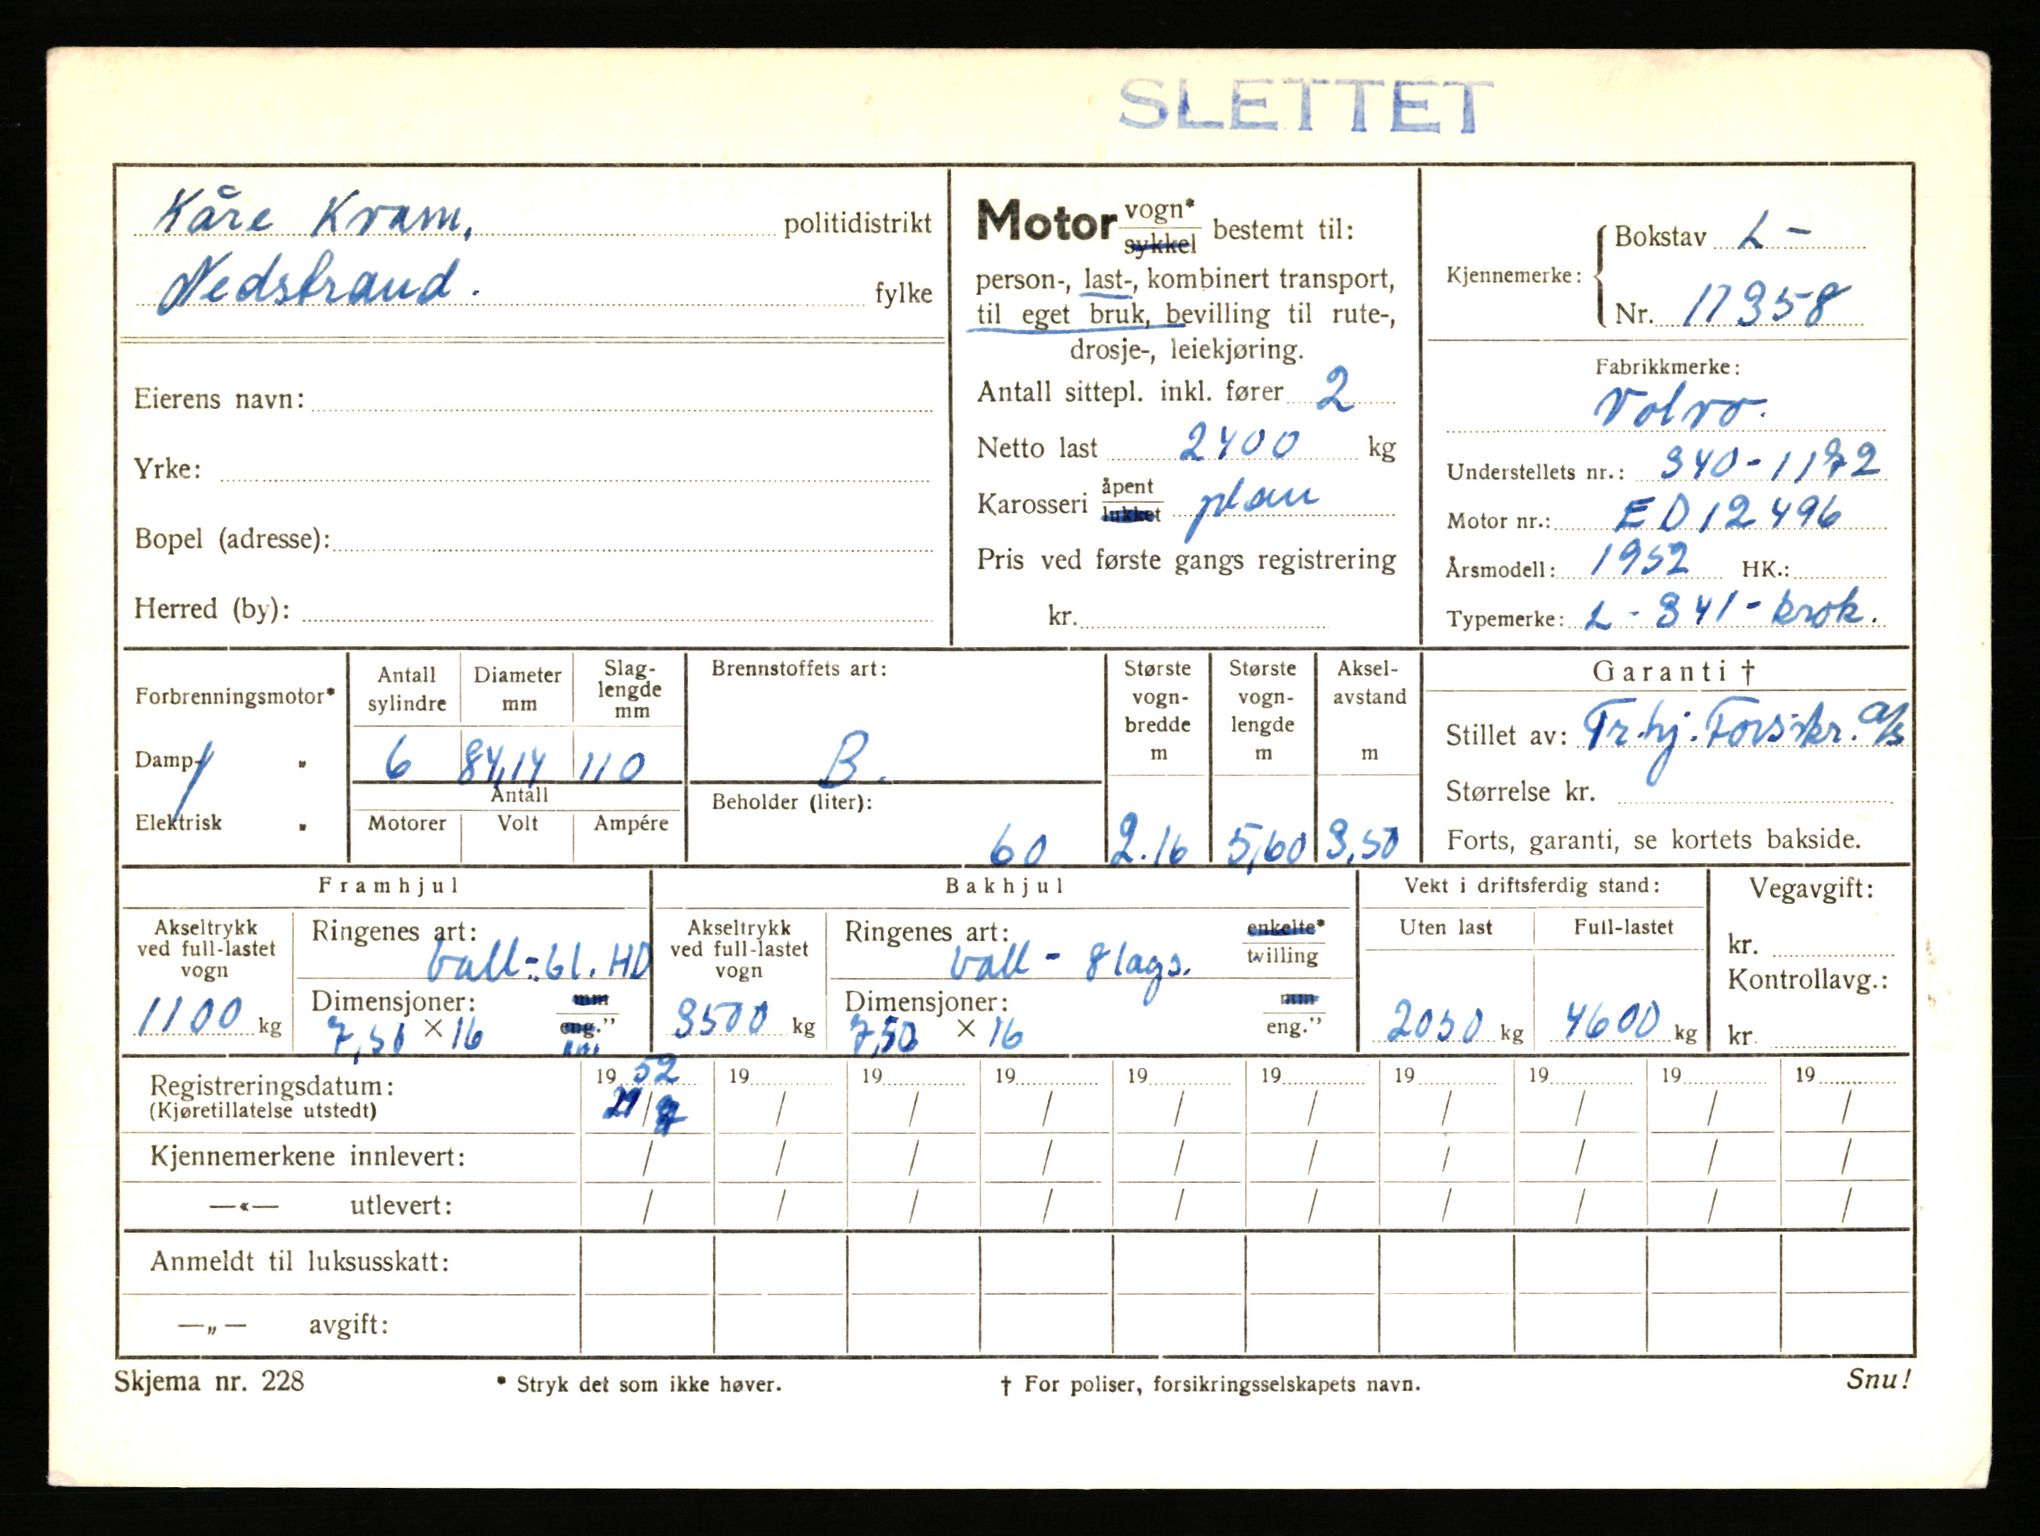 SLETTET
Kåre Kvam, politidistrikt
Nedstrand. fylke
Eierens navn:
Yrke:
Bopel (adresse):
Herred (by):
Motor vogn* sykkel bestemt til:
person-, last-, kombinert transport,
til eget bruk, bevilling til rute-,
drosje-, leiekjøring.
Antall sittepl. inkl. fører 2
Netto last 2400 kg
Karosseri åpent lukket plan
Pris ved første gangs registrering
kr.
Kjennemerke: Bokstav L-
Nr. 17358
Fabrikkmerke:
Volvo.
Understellets nr.: 340-1172
Motor nr.: ED12496
Årsmodell: 1952 HK.:
Typemerke: L-341-krok.
Forbrenningsmotor*
Damp- „
Elektrisk „
Antall sylindre Diameter mm Slag-lengde mm
6 84,14 110
Antall
Motorer Volt Ampére
Brennstoffets art:
B.
Beholder (liter):
60
Største vogn-bredde m
2.16
Største vogn-lengde m
5,60
Aksel-avstand m
3,50
Garanti †
Stillet av: Tr.hj. Forsikr. A/S
Størrelse kr.
Forts, garanti, se kortets bakside.
Framhjul
Akseltrykk ved full-lastet vogn
1100 kg
Ringenes art:
ball-6l. HD
Dimensjoner: mm
7,50 × 16 eng.”
Bakhjul
Akseltrykk ved full-lastet vogn
3500 kg
Ringenes art: enkelte*
ball - 8 lags. tvilling
Dimensjoner: mm
7,50 × 16 eng.”
Vekt i driftsferdig stand:
Uten last Full-lastet
2050 kg 4600 kg
Vegavgift:
kr.
Kontrollavg.:
kr.
Registreringsdatum: 19 52 19 19 19 19 19 19 19 19 19
(Kjøretillatelse utstedt) 21/ / / / / / / / / /
Kjennemerkene innlevert: / / / / / / / / / /
—«— utlevert: / / / / / / / / / /
Anmeldt til luksusskatt:
—„— avgift:
Skjema nr. 228 * Stryk det som ikke høver. † For poliser, forsikringsselskapets navn. Snu!